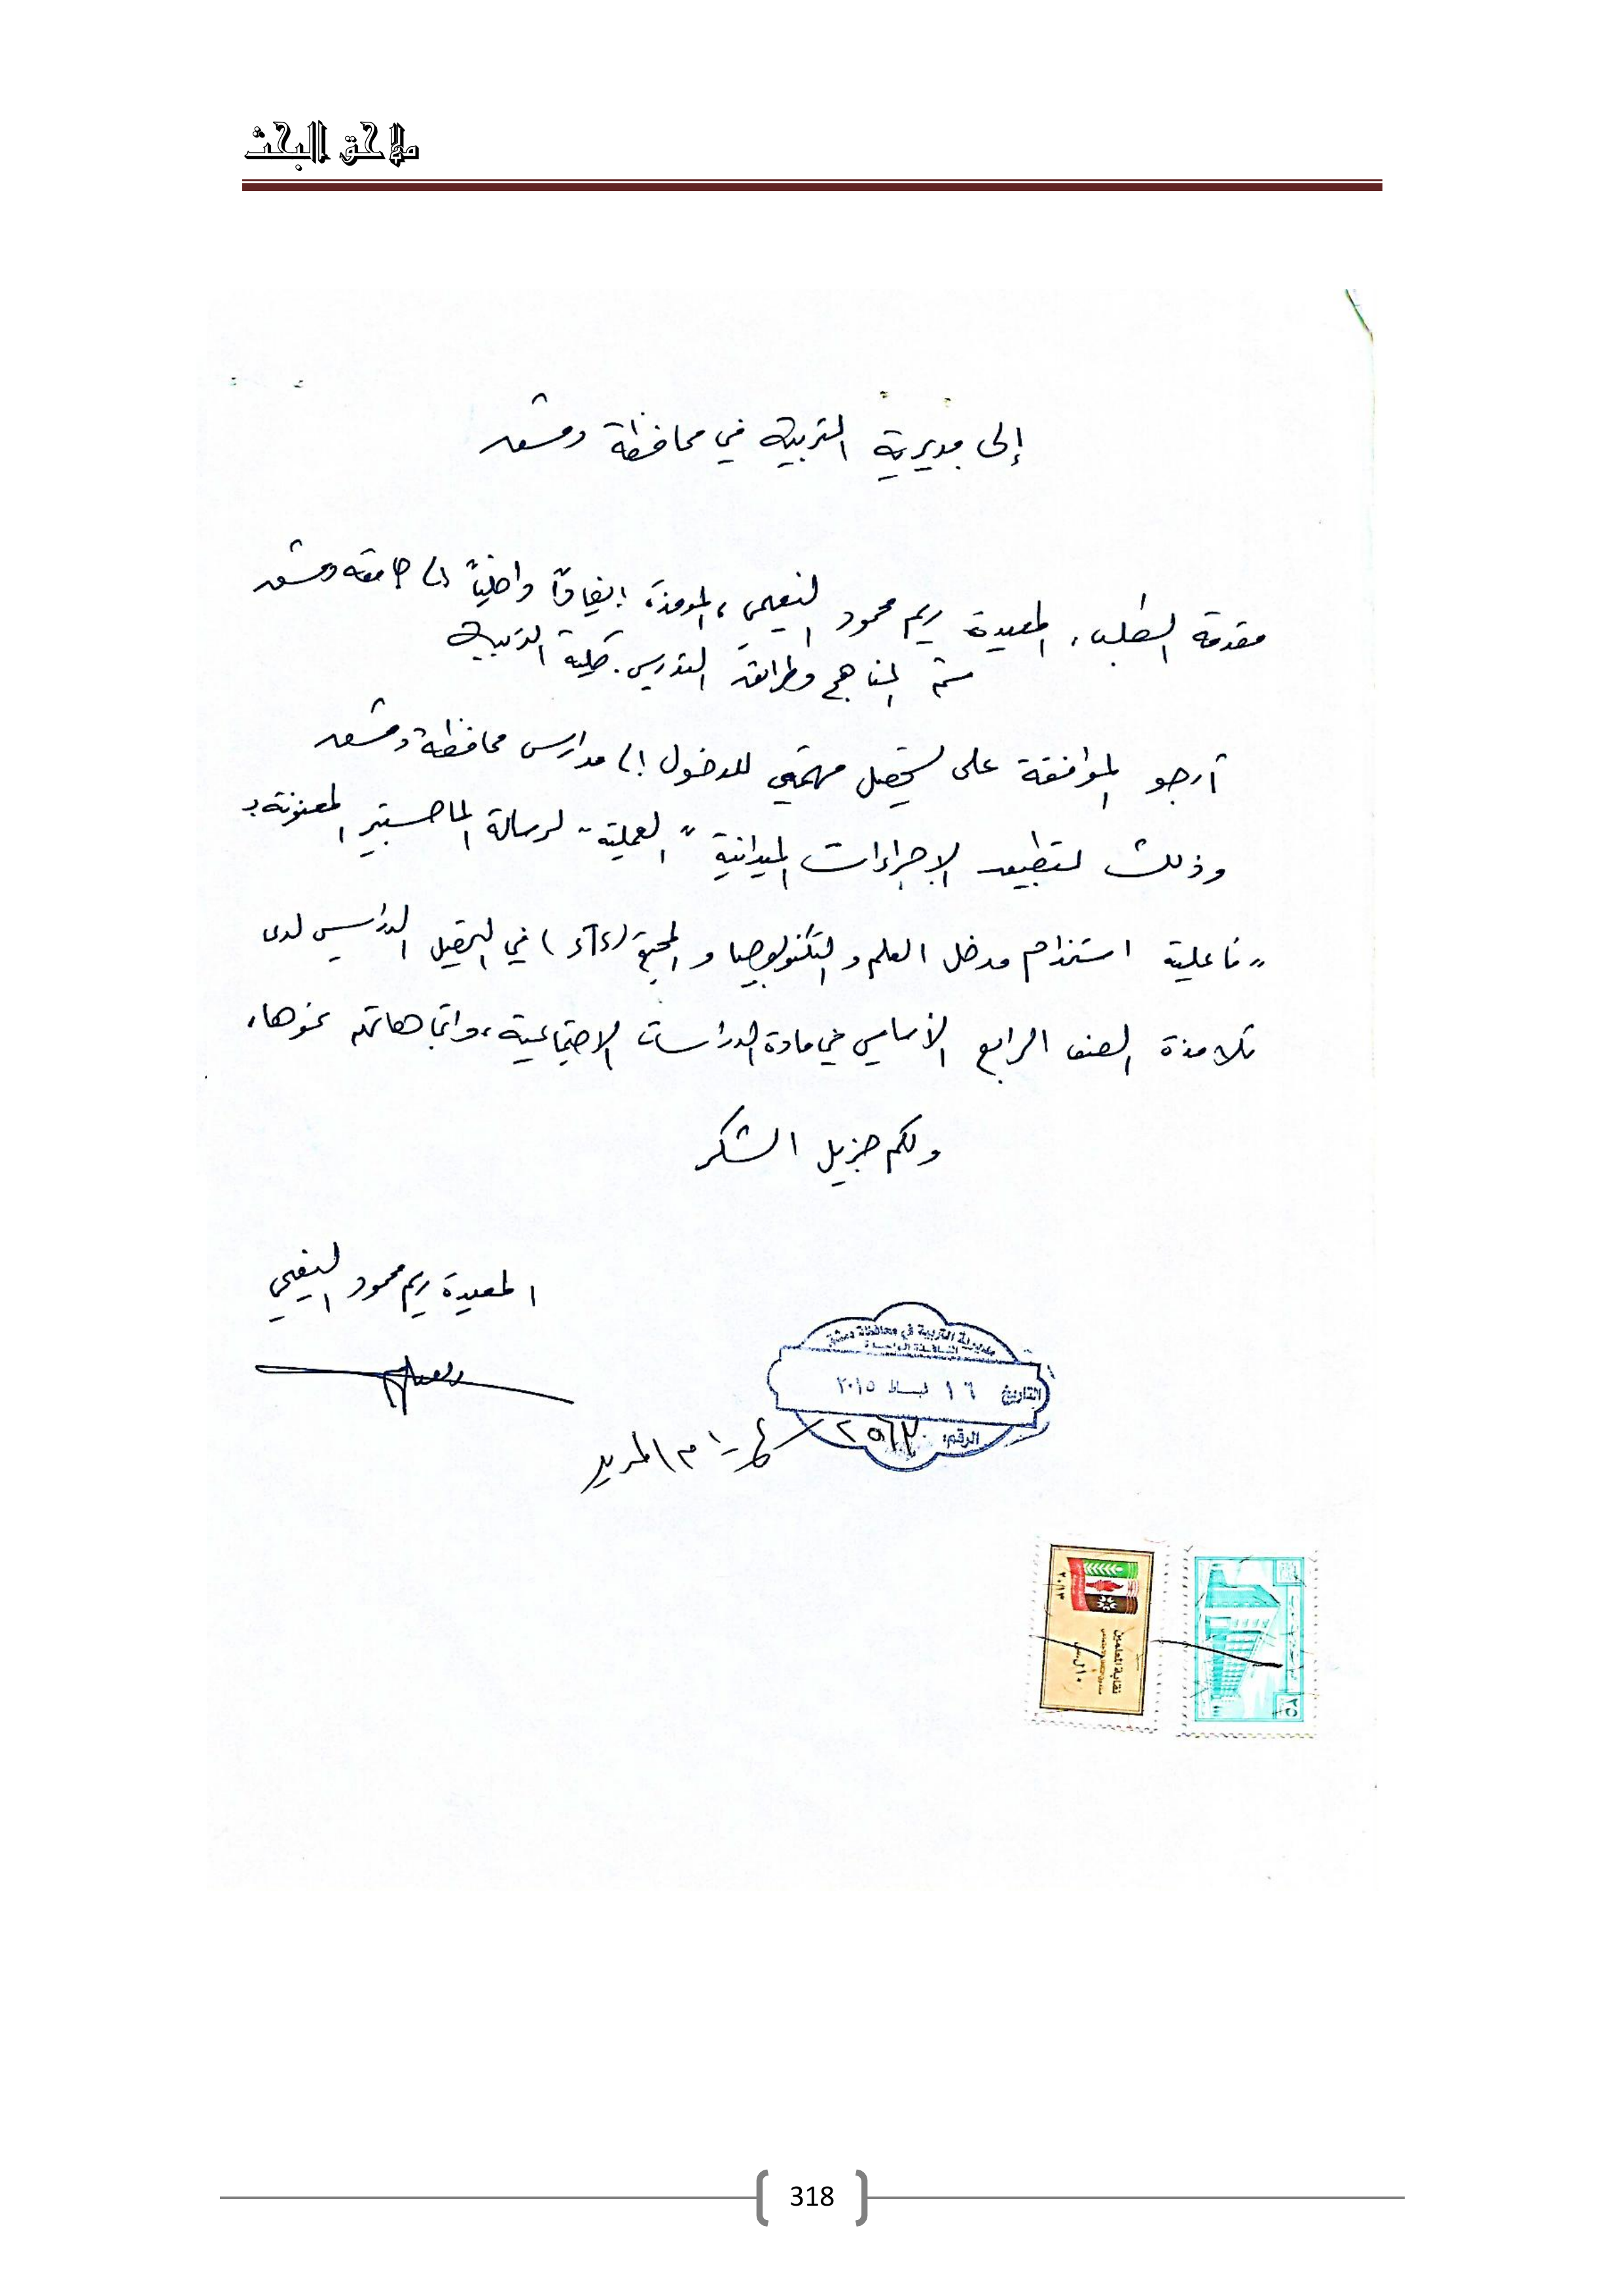 ملاحق البحث
إلى مديرية التربية في محافظة دمشق
مقدمة الطلب، المعيدة ريم محمود النعيمي، الموفدة إيفاداً داخلياً إلى جامعة دمشق
قسم المناهج وطرائق التدريس. كلية التربية
أرجو الموافقة على تسهيل مهمتي للدخول إلى مدارس محافظة دمشق
وذلك لتطبيق الإجراءات الميدانية "العملية" لرسالة الماجستير المعنونة بـ
"فاعلية استخدام مدخل العلم والتكنولوجيا والمجتمع في التحصيل الدراسي لدى
تلامذة الصف الرابع الأساسي في مادة الدراسات الاجتماعية، واتجاهاتهم نحوها،
ولكم جزيل الشكر
المعيدة ريم محمود النعيمي
مديرية التربية في محافظة دمشق
التاريخ ١٦ شباط ٢٠١٥
الرقم:
نقابة المعلمين
٢٠١٣
٢٥
318